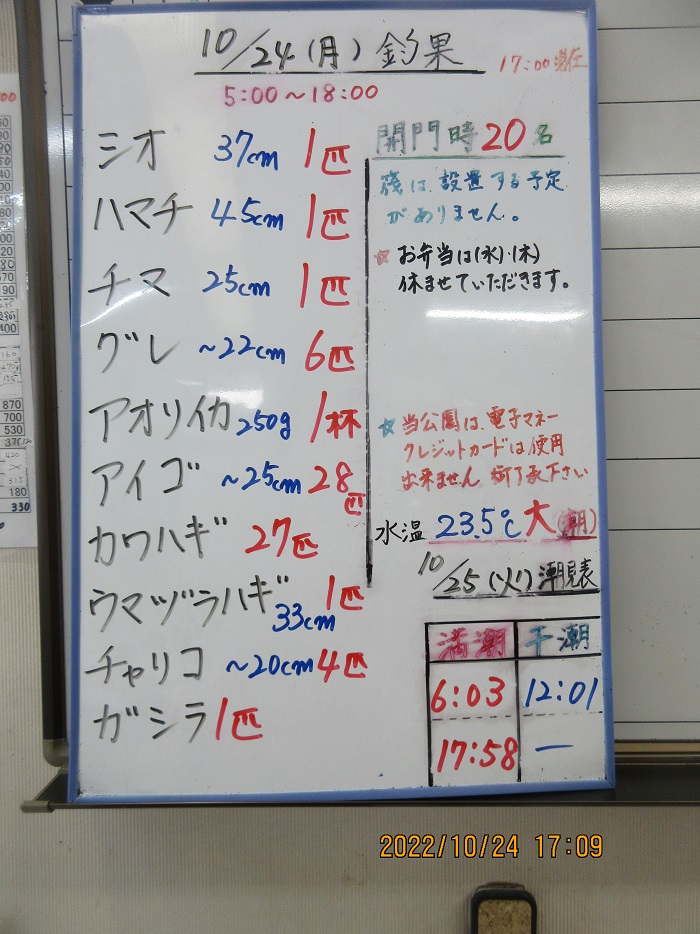 10/24(月) 釣果
17:00現在
5:00~18:00
シオ 37cm 1匹
ハマチ 45cm 1匹
チヌ 25cm 1匹
グレ ~22cm 6匹
アオリイカ 250g 1杯
アイゴ ~25cm 28匹
カワハギ 27匹
ウマヅラハギ 33cm 1匹
チャリコ ~20cm 4匹
ガシラ 1匹
開門時20名
筏は、設置する予定
がありません。
☆ お弁当は(水)・(木)
休ませていただきます。
☆ 当公園は、電子マネー
クレジットカードは使用
出来ません
水温 23.5℃ 大(潮)
10/25(火)潮見表
満潮 干潮
6:03 12:01
17:58 ー
2022/10/24 17:09
870
700
530
180
330